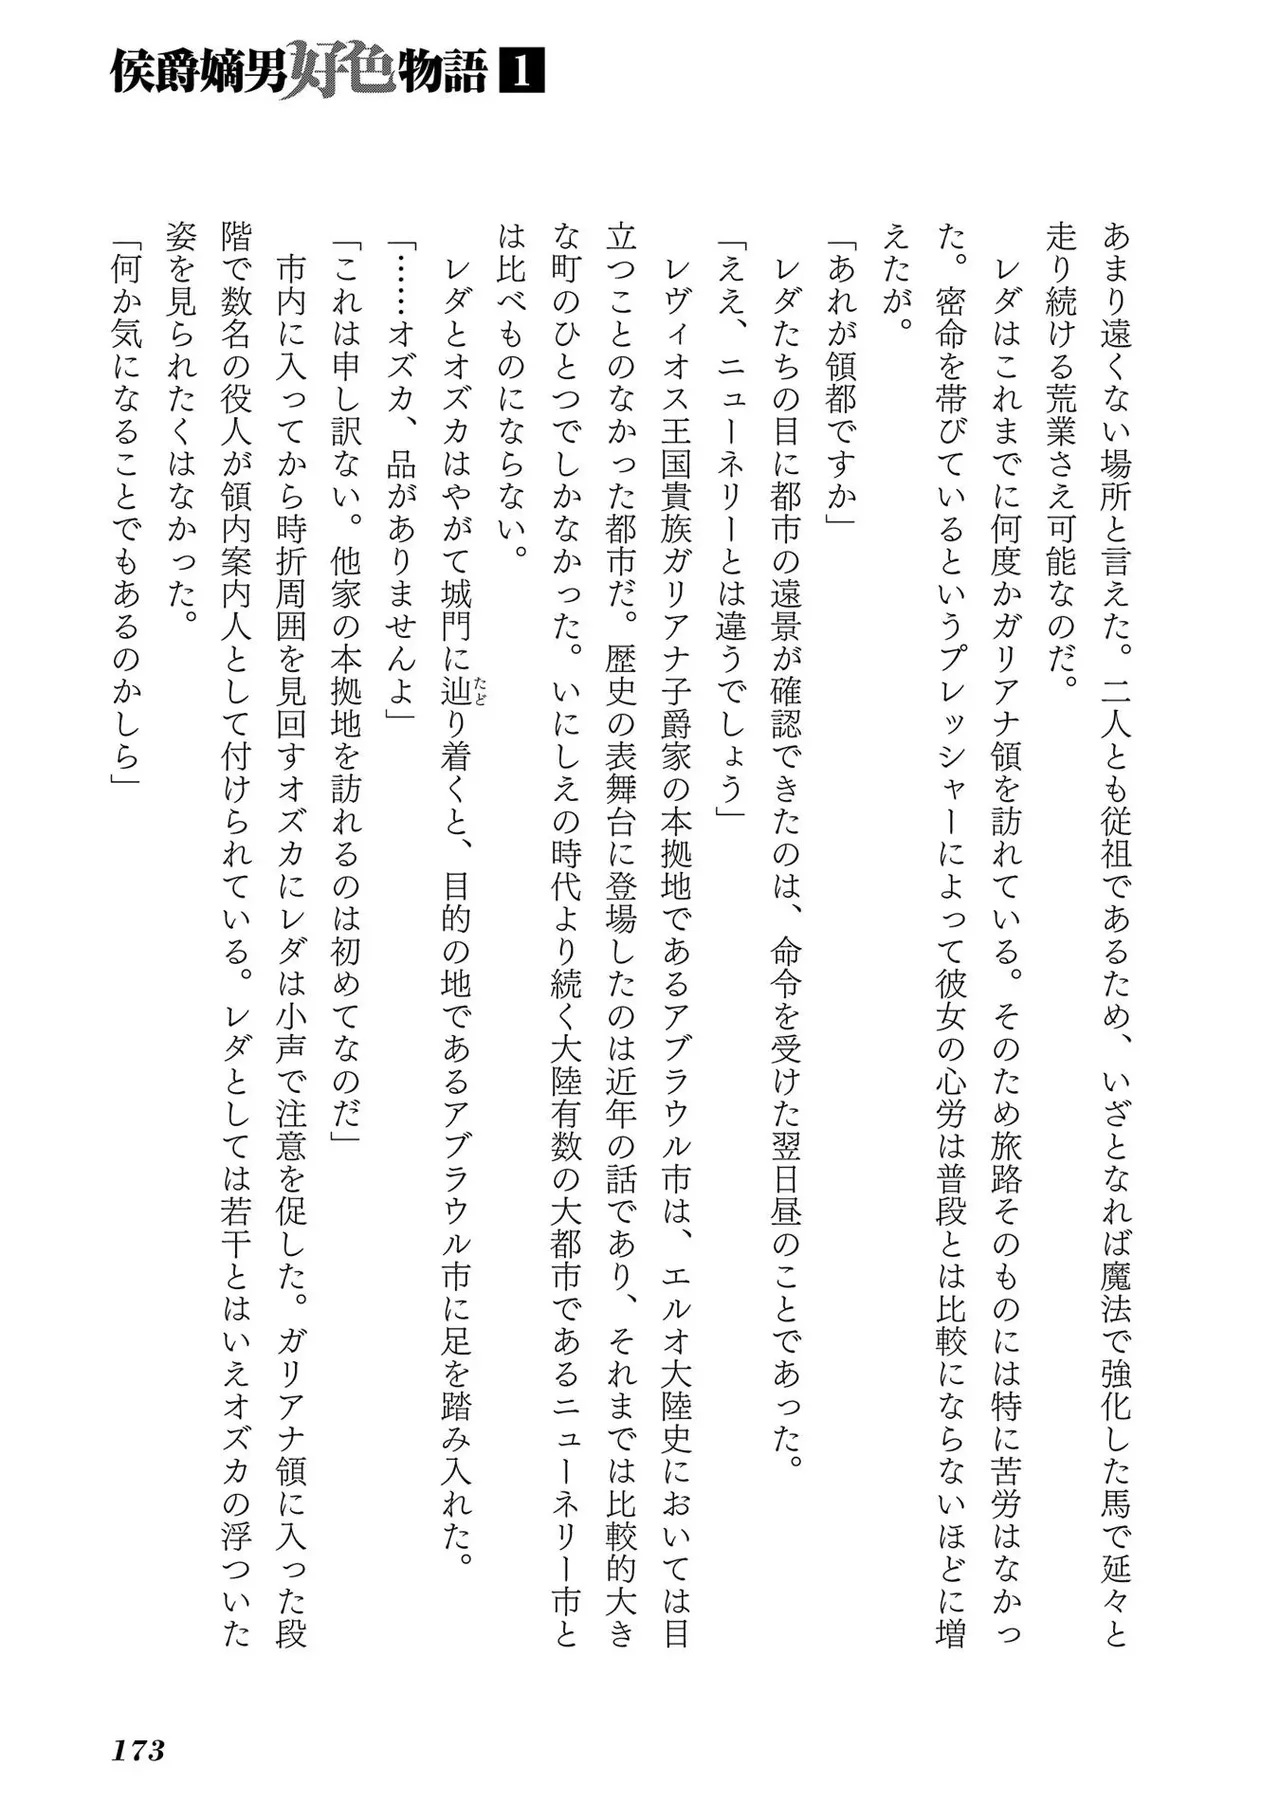 侯爵嫡男好色物語 1
あまり遠くない場所と言えた。二人とも従祖であるため、いざとなれば魔法で強化した馬で延々と
走り続ける荒業さえ可能なのだ。
　レダはこれまでに何度かガリアナ領を訪れている。そのため旅路そのものには特に苦労はなかっ
た。密命を帯びているというプレッシャーによって彼女の心労は普段とは比較にならないほどに増
えたが。
「あれが領都ですか」
　レダたちの目に都市の遠景が確認できたのは、命令を受けた翌日昼のことであった。
「ええ、ニューネリーとは違うでしょう」
　レヴィオス王国貴族ガリアナ子爵家の本拠地であるアブラウル市は、エルオ大陸史においては目
立つことのなかった都市だ。歴史の表舞台に登場したのは近年の話であり、それまでは比較的大き
な町のひとつでしかなかった。いにしえの時代より続く大陸有数の大都市であるニューネリー市と
は比べものにならない。
　レダとオズカはやがて城門に辿り着くと、目的の地であるアブラウル市に足を踏み入れた。
たど
「……オズカ、品がありませんよ」
「これは申し訳ない。他家の本拠地を訪れるのは初めてなのだ」
　市内に入ってから時折周囲を見回すオズカにレダは小声で注意を促した。ガリアナ領に入った段
階で数名の役人が領内案内人として付けられている。レダとしては若干とはいえオズカの浮ついた
姿を見られたくはなかった。
「何か気になることでもあるのかしら」
173